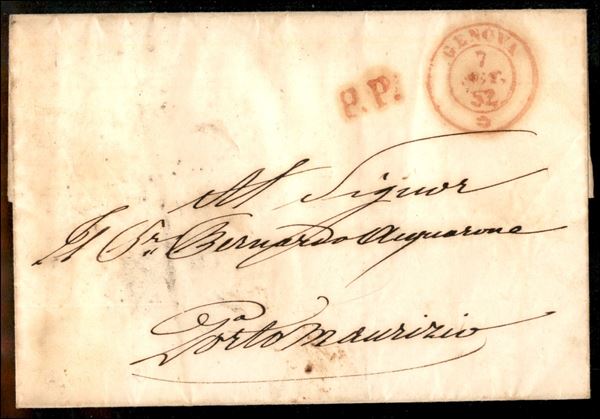 GENOVA
7
52
P.P.
Al Signor
Bernardo Acquarone
Porto Maurizio